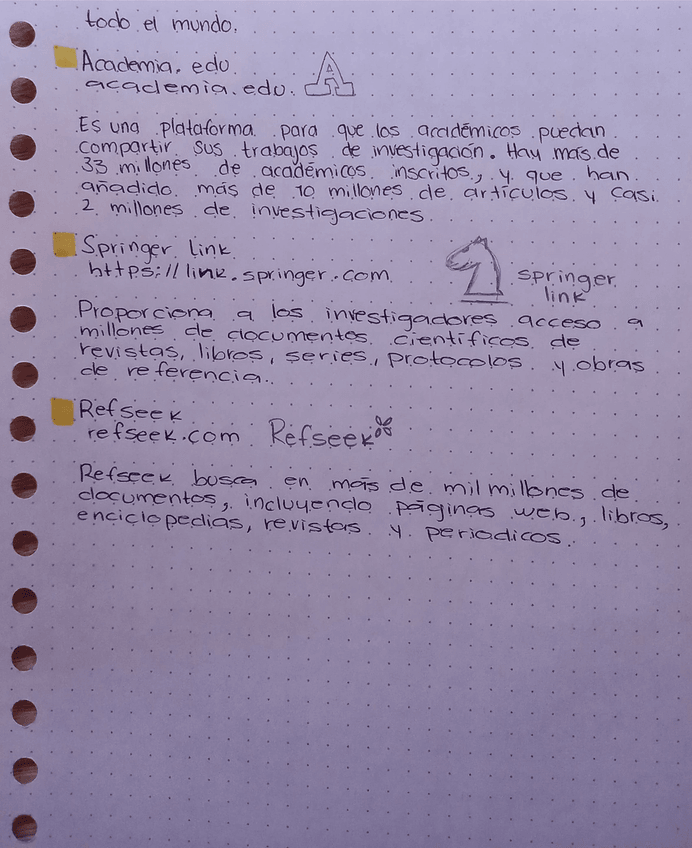 todo el mundo.
Academia.edu
academia.edu.
A
Es una plataforma para que los académicos puedan
compartir sus trabajos de investigación. Hay más de
33 millones de académicos inscritos, y que han
añadido más de 10 millones de artículos y casi
2 millones de investigaciones.
Springer link
https://link.springer.com
springer
link
Proporciona a los investigadores acceso a
millones de documentos científicos de
revistas, libros, series, protocolos y obras
de referencia.
Refseek
refseek.com Refseek
Refseek busca en más de mil millones de
documentos, incluyendo páginas web, libros,
enciclopedias, revistas y periodicos.